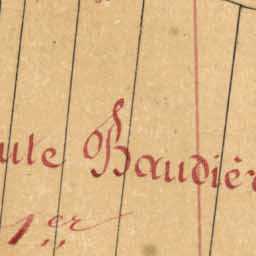 ute Baudiè
1er